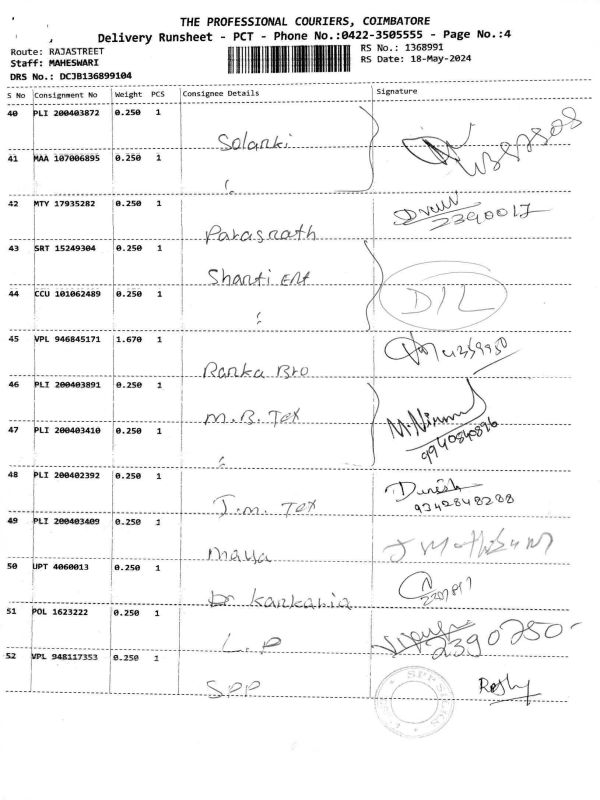 THE PROFESSIONAL COURIERS, COIMBATORE
Delivery Runsheet - PCT - Phone No.:0422-3505555 - Page No.:4
Route: RAJASTREET
Staff: MAHESWARI
DRS No.: DCJB136899104
RS No.: 1368991
RS Date: 18-May-2024
S No Consignment No Weight PCS Consignee Details Signature
40 PLI 200403872 0.250 1
Solanki
41 MAA 107006895 0.250 1
42 MTY 17935282 0.250 1
2390017
Parasnath
43 SRT 15249304 0.250 1
Shanti Ent
44 CCU 101062489 0.250 1
D/L
45 VPL 946845171 1.670 1
Ranka Bro
46 PLI 200403891 0.250 1
M.B. Tex
47 PLI 200403410 0.250 1
9940840896
48 PLI 200402392 0.250 1
9342848288
J.M. Tex
49 PLI 200403409 0.250 1
Maya
50 UPT 4060013 0.250 1
Kankaria
51 POL 1623222 0.250 1
2390250-
L.P
52 VPL 948117353 0.250 1
SPP
SPP SILKS